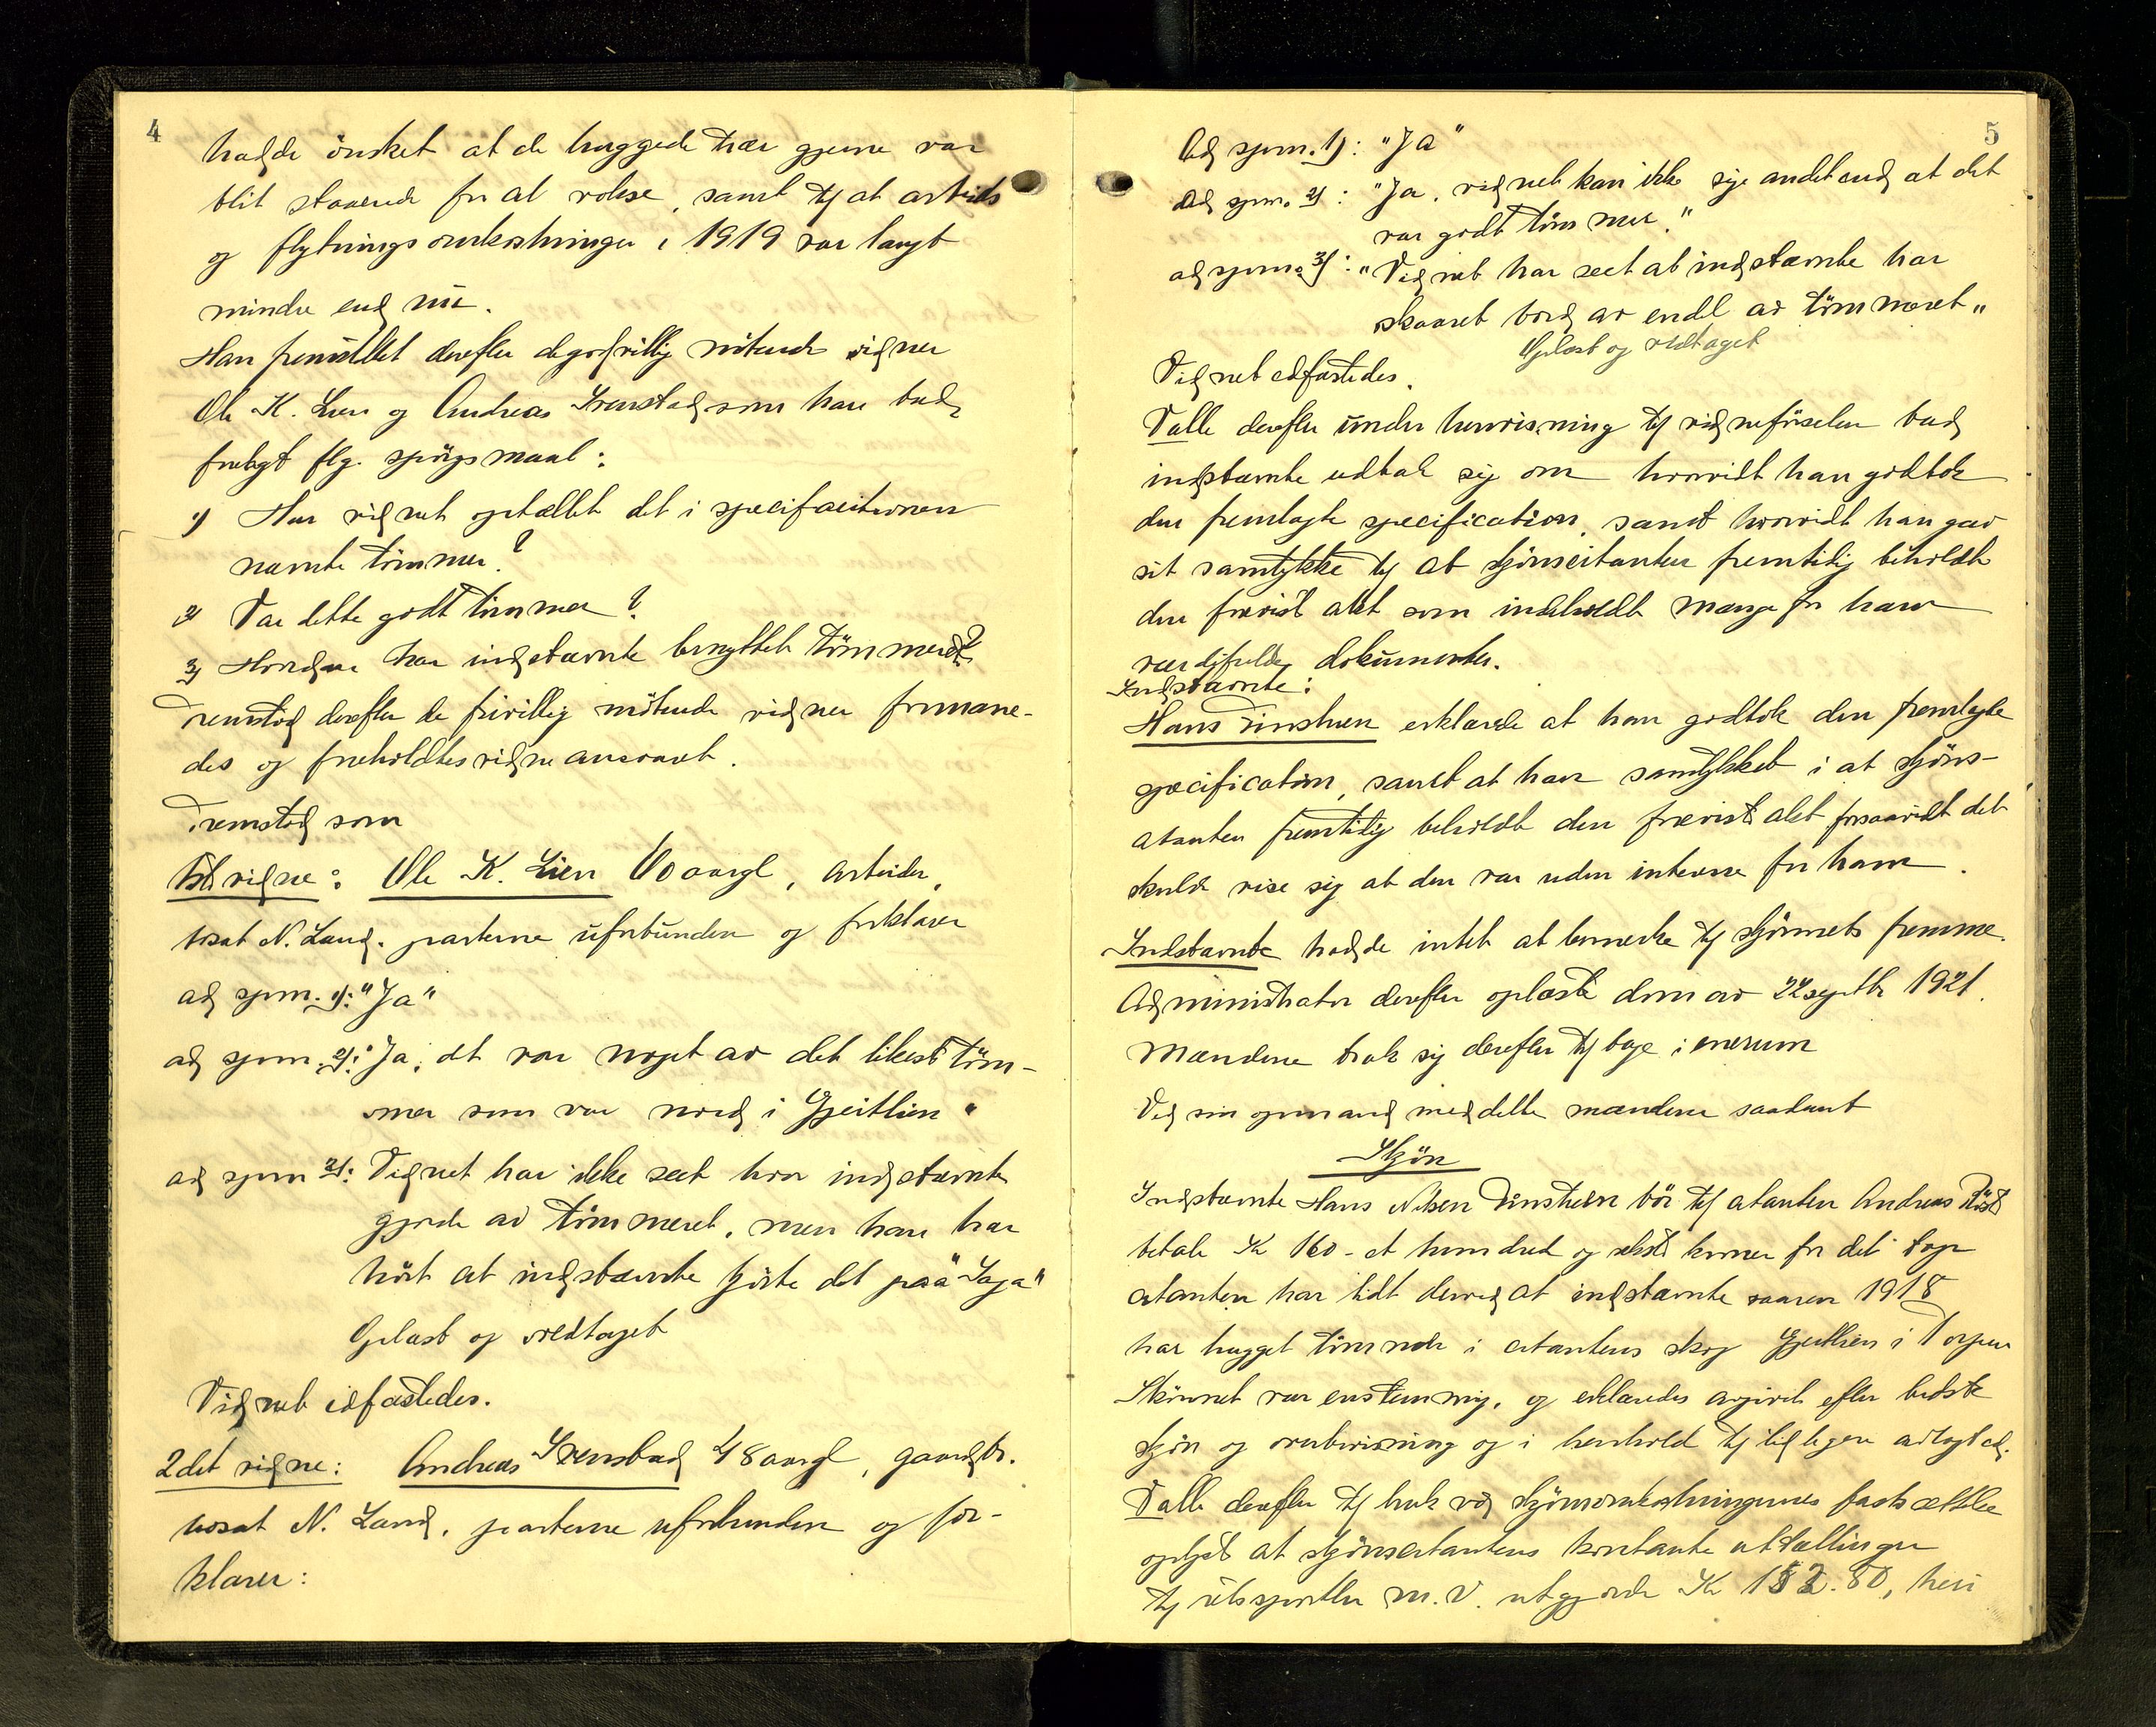 4
hadde önsket at de huggede trær gjerne var
blit staaende for at vokse, samt til at arbeids
og flytningsomkostninger i 1919 var langt
mindre end nu.
Han fremstillet derefter de godvillig mötende vidner
Ole K. Lien og Andreas Svenstad som han bad
forelagt flg. spörgsmaal:
1) Har vidnet optællet det i specifacitionen
nævnte tömmer?
2) Var dette godt tömmer?
3) Hvordan har indstævnte benyttet tömmeret?
Fremstod derefter de frivillig mötende vidner formane-
des og foreholdtes vidneansvaret.
Fremstod som
1st vidne: Ole K. Lien 60 aargl, arbeider,
bosat N. Land. parterne uforbunden og forklarer
ad spm. 1): "Ja"
ad spm. 2): Ja, det var noget av det likeste töm-
mer som var nord i Gjeitlien "
ad spm 3): Vidnet har ikke seet hvor indstævnte
gjorde av tömmeret, men han har
hört at indstævnte kjörte det paa "Saga"
Oplæst og vedtaget
Vidnet edfæstedes.
2det vidne: Andreas Svenstad 48 aargl, gaardbr.
bosat N. Land, parterne uforbunden og for-
klarer:
5
Ad spm. 1): "Ja"
Ad spm. 2): "Ja, vidnet kan ikke sige andet end at det
var godt tömmer."
ad spm. 3): "Vidnet har seet at indstævnte har
skaaret bord av endel av tömmeret"
Oplæst og vedtaget
Vidnet edfæstedes.
Valle derefter under henvisning til vidneförselen bad
indstævnte udtale sig om hvorvidt han godtok
den fremlagte specification, samt hvorvidt han gav
sit samtykke til at skjönscitanten fremtidig beholdt
den forevist akt som indeholdt mange for ham
værdifulde dokumenter.
Indstævnte:
Hans Finstuen erklærede at han godtok den fremlagte
specification, samt at han samtykket i at skjöns-
citanten fremtidig beholdt den forevist akt forsaavidt det
skulde vise sig at den var uden interesse for ham.
Indstævnte hadde intet at bemerke til skjönnets fremme.
Administrator derefter oplæste dom av 22 septbr 1921.
Mændene trak sig derefter tilbage i enerum
Ved sin opmand meddelte mændene saadant
Skjön
Indstævnte Hans Nilsen Finstuen bör til citanten Andreas
betale Kr 160 - et hundred og seksti kroner for det tap
citanten har lidt derved at indstævnte vaaren 1918
har hugget tömmer i citantens skog Gjeitlien i Torpen
Skönnet var enstemmig, og erklæredes avgivet efter bedste
skjön og overbevisning og i henhold til tidligere avlagt ed.
Valle derefter til bruk ved skjönsomkostningernes fastsættelse
oplyst at skjönscitantens kontante utællinger
til retsgebyr m.v. utgjorde Kr 132.80, heri